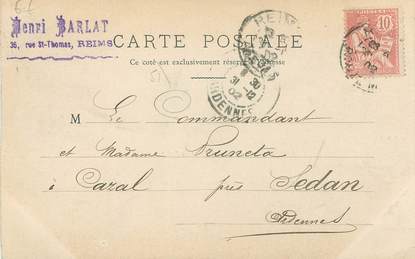 Henri BARLAT
36, rue St-Thomas, REIMS
CARTE POSTALE
Ce côté est exclusivement réservé à l'adresse
REIMS
ARDENNES
10
M Le Commandant
et Madame Pruneta
à Cazal près Sedan
Ardennes